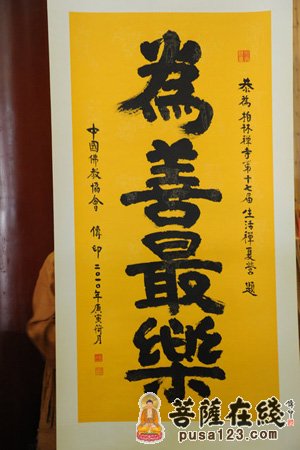 恭為柏林禪寺第十七届生活禪夏營題
為善最樂
中國佛教協會 傳印 二〇一〇年庚寅荷月
菩薩在綫
pusa123.com